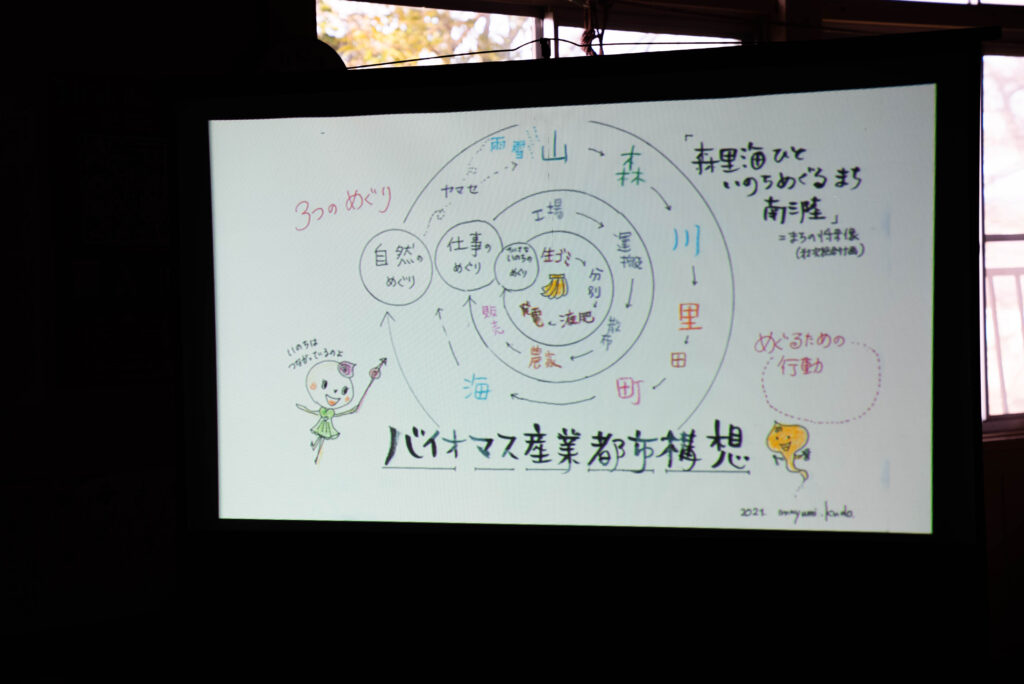 「森里海ひと
いのちめぐるまち
南三陸」
=まちの将来像
3つのめぐり
雨 雪
山
森
ヤマセ
川
里
田
町
海
自然の
めぐり
仕事の
めぐり
工場
運搬
散布
農家
販売
小さな
いのちの
めぐり
生ゴミ
分別
液肥
発電
いのちは
つながっているのよ
めぐるための
行動
バイオマス産業都市構想
2021 mayumi.kudo